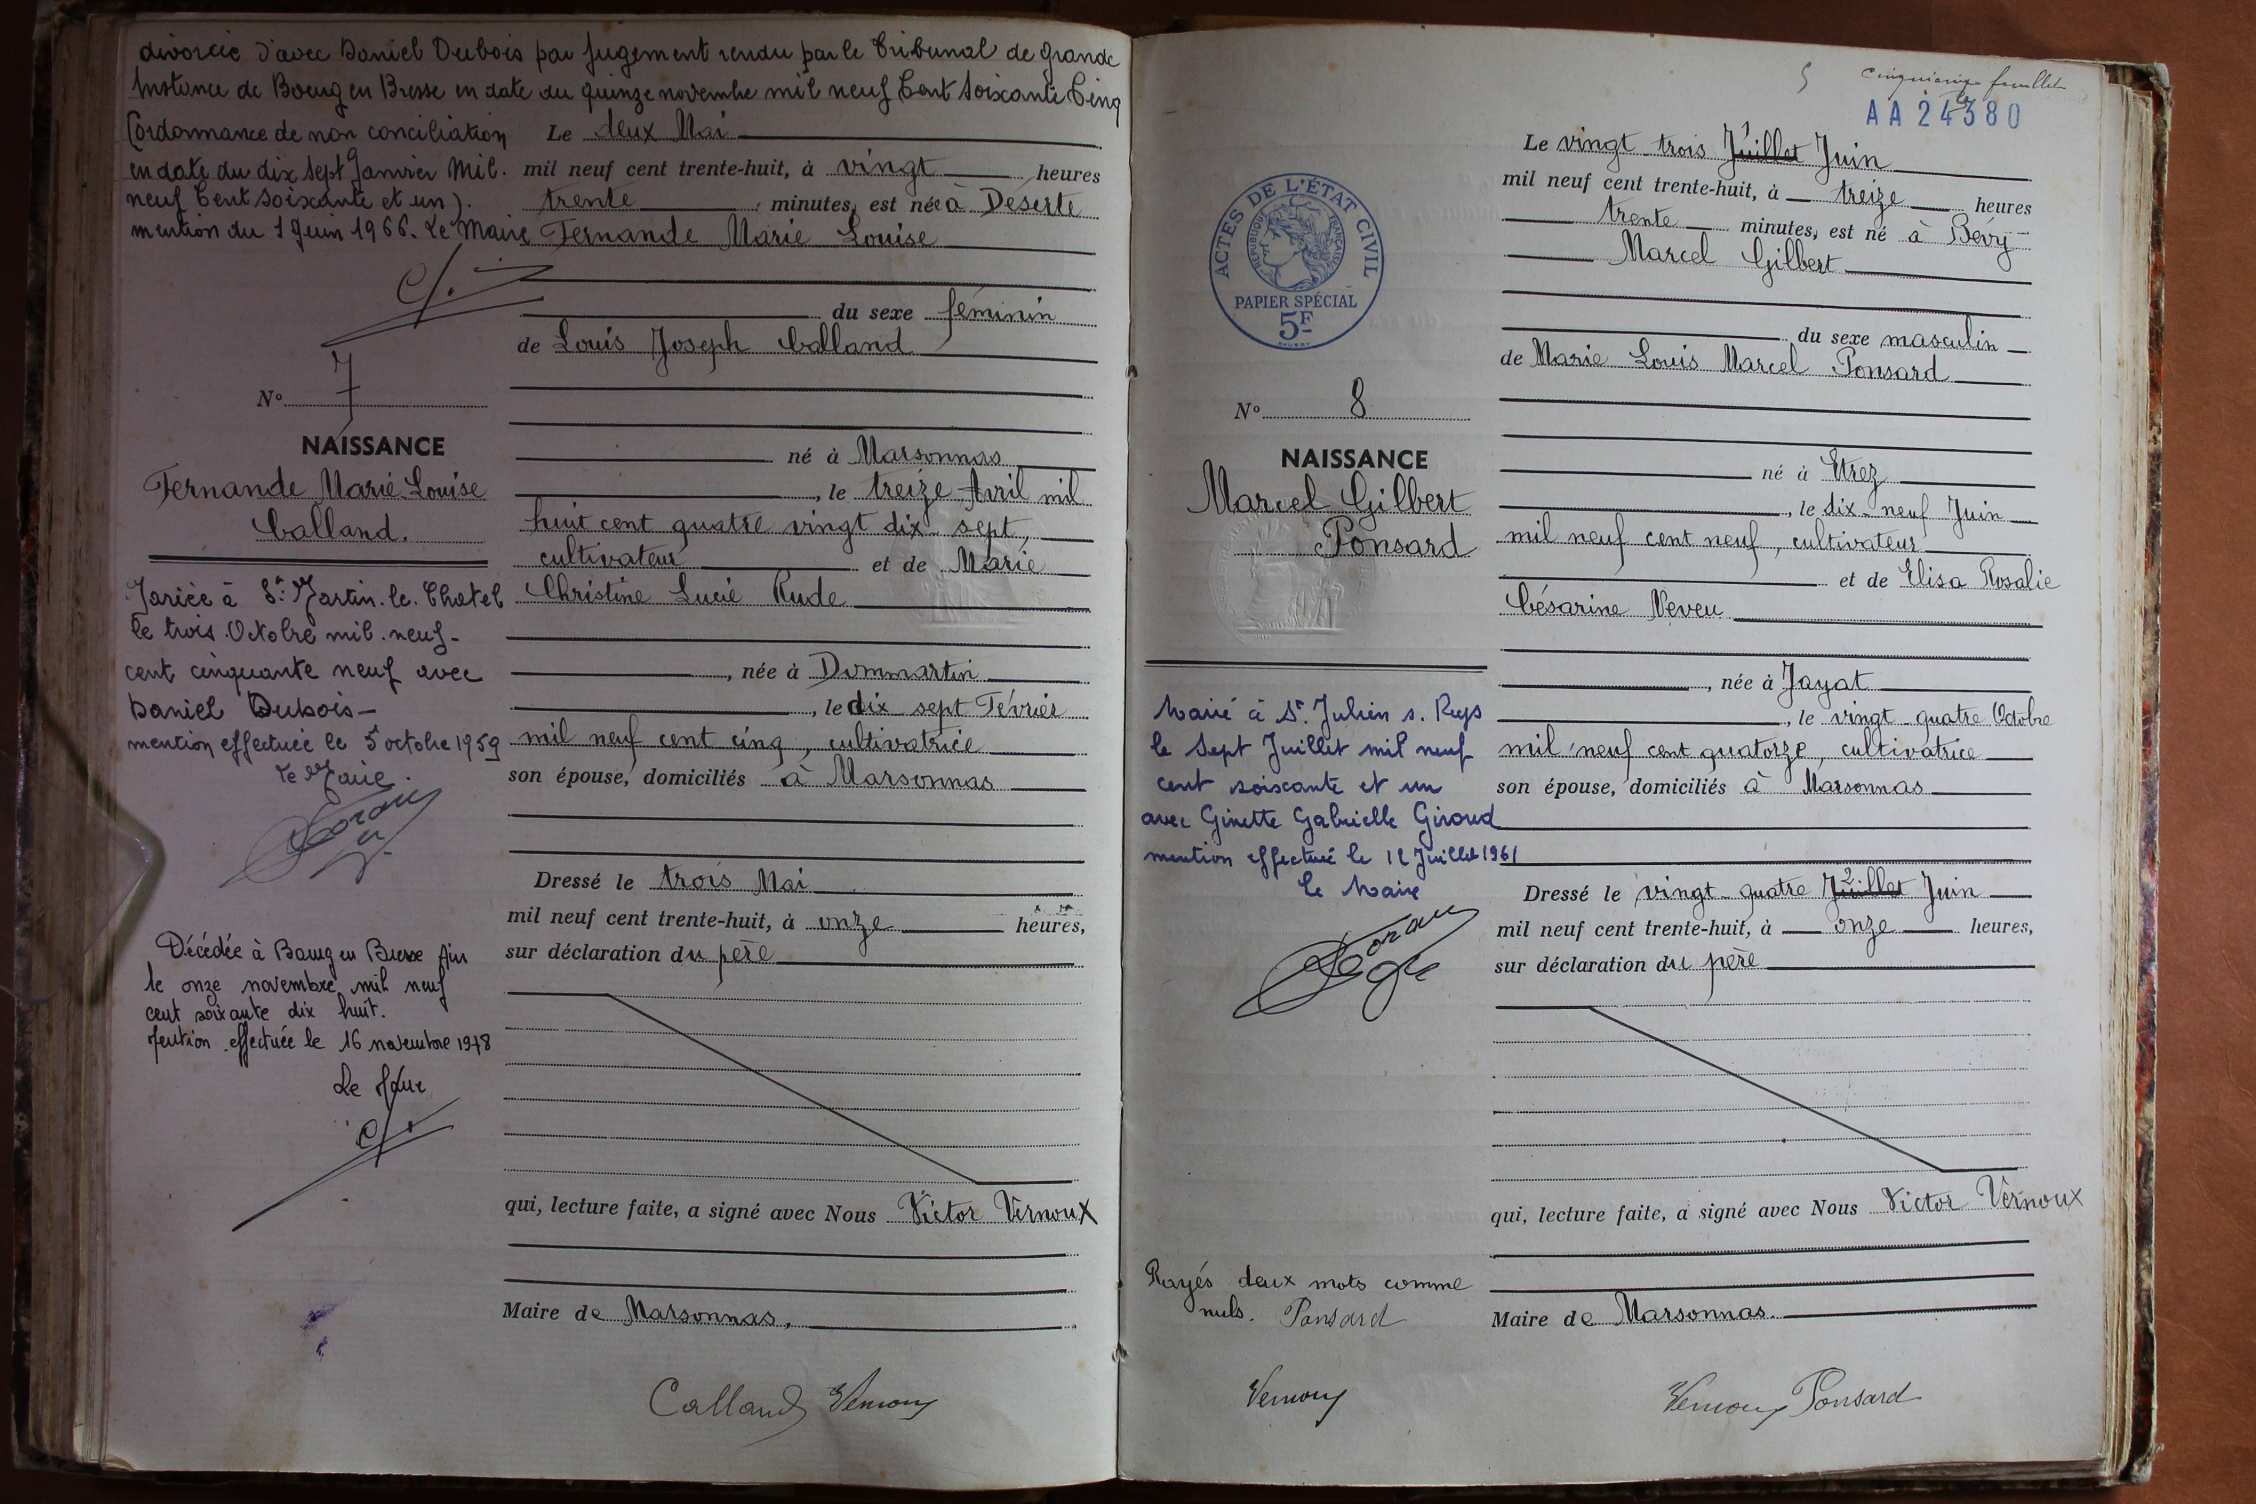 divorcée d'avec Daniel Dubois par jugement rendu par le Tribunal de Grande
Instance de Bourg en Bresse en date du quinze novembre mil neuf Cent soixante Cinq
(ordonnance de non conciliation
en date du dix sept Janvier Mil.
neuf Cent soixante et un).
mention du 1 Juin 1966. Le Maire
N° 7
NAISSANCE
Fernande Marie-Louise
Calland.
Mariée à St Martin-le-Chatel
le trois Octobre mil-neuf-
cent cinquante neuf avec
Daniel Dubois-
mention effectuée le 5 octobre 1959
le Maire.
Décédée à Bourg en Bresse Ain
le onze novembre mil neuf
cent soixante dix huit.
Mention effectuée le 16 novembre 1978
Le Maire
Le deux Mai
mil neuf cent trente-huit, à vingt heures
trente minutes, est née à Déserte
Fernande Marie Louise
du sexe féminin
de Louis Joseph Calland
né à Marsonnas
, le treize Avril mil
huit cent quatre vingt dix-sept,
cultivateur et de Marie
Christine Lucie Rude
, née à Dommartin
, le dix sept Février
mil neuf cent cinq, cultivatrice
son épouse, domiciliés à Marsonnas
Dressé le trois Mai
mil neuf cent trente-huit, à onze heures,
sur déclaration du père
qui, lecture faite, a signé avec Nous Victor Vernoux
Maire de Marsonnas.
Calland Vernoux
5 cinquième feuillet
AA 24380
ACTES DE L'ÉTAT CIVIL
RÉPUBLIQUE FRANÇAISE
PAPIER SPÉCIAL
5F
N° 8
NAISSANCE
Marcel Gilbert
Ponsard
Marié à St. Julien s. Reys
le Sept Juillet mil neuf
cent soixante et un
avec Ginette Gabrielle Giroud
mention effectuée le 12 Juillet 1961
Le Maire
Rayés deux mots comme
nuls. Ponsard
Vernoux
Le vingt-trois Juillet Juin
mil neuf cent trente-huit, à treize heures
trente minutes, est né à Bévy
Marcel Gilbert
du sexe masculin
de Marie Louis Marcel Ponsard
né à Etrez
, le dix-neuf Juin
mil neuf cent neuf, cultivateur
et de Elisa Rosalie
Césarine Neveu
, née à Jayat
, le vingt quatre Octobre
mil neuf cent quatorze, cultivatrice
son épouse, domiciliés à Marsonnas
Dressé le vingt-quatre Juillet Juin
mil neuf cent trente-huit, à onze heures,
sur déclaration du père
qui, lecture faite, a signé avec Nous Victor Vernoux
Maire de Marsonnas.
Vernoux Ponsard